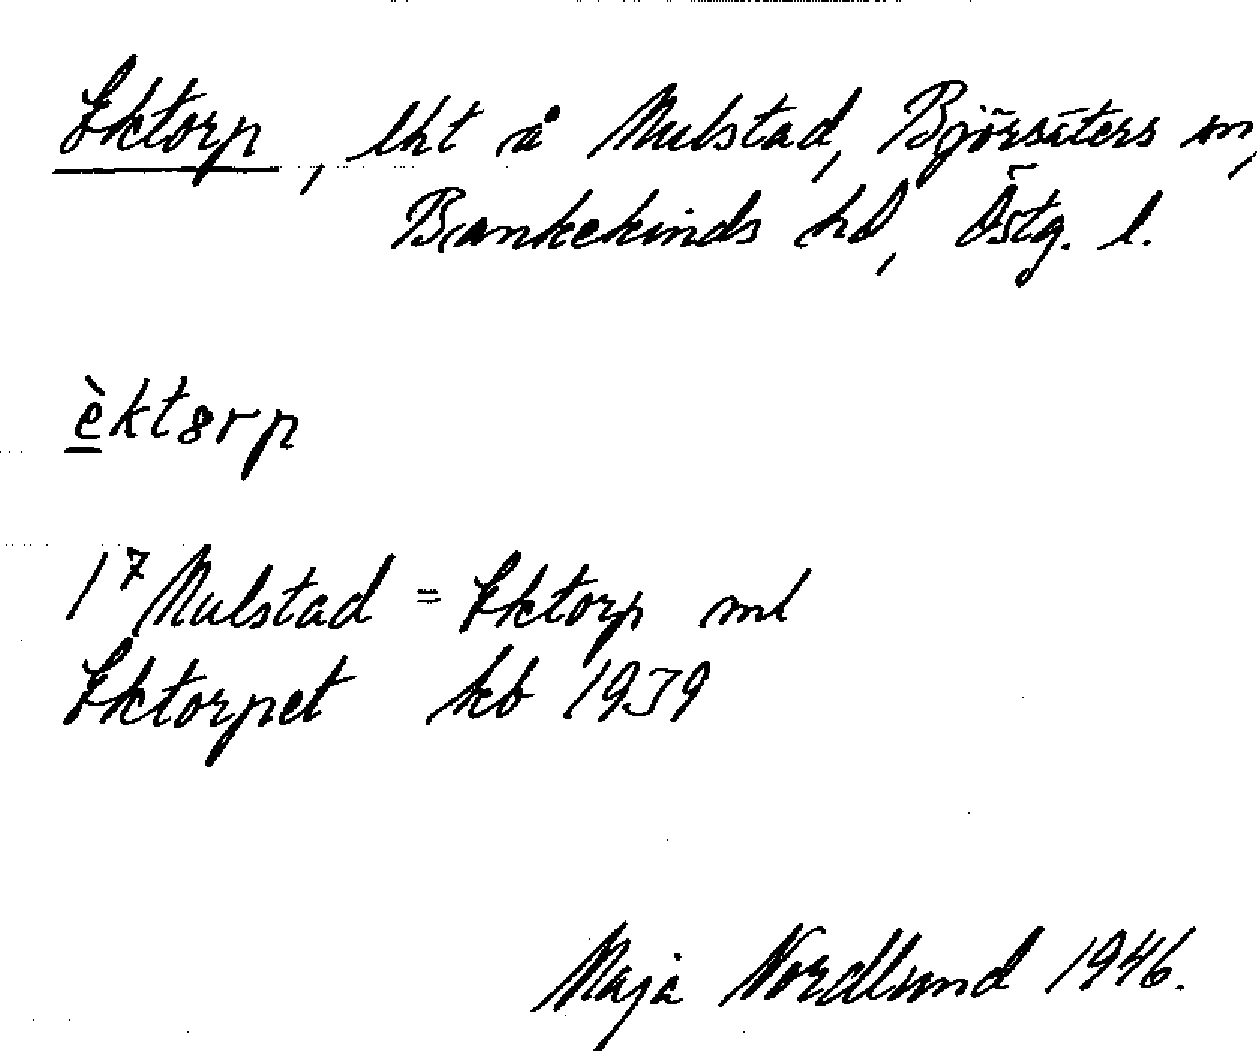 Ektorp, lht å Mulstad, Björsäters sn,
Bankekinds hd, Östg. l.
èktorp
1⁷ Mulstad = Ektorp ml
Ektorpet kb 1939
Maja Nordlund 1946.